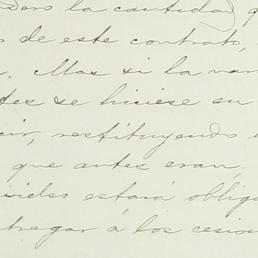 Pero la cantidad q
s de este contrato,
. Mas si la var
tes se hiciese en
cir, restituyendo
que antes eran,
vides estará obliga
tregar á los cesion